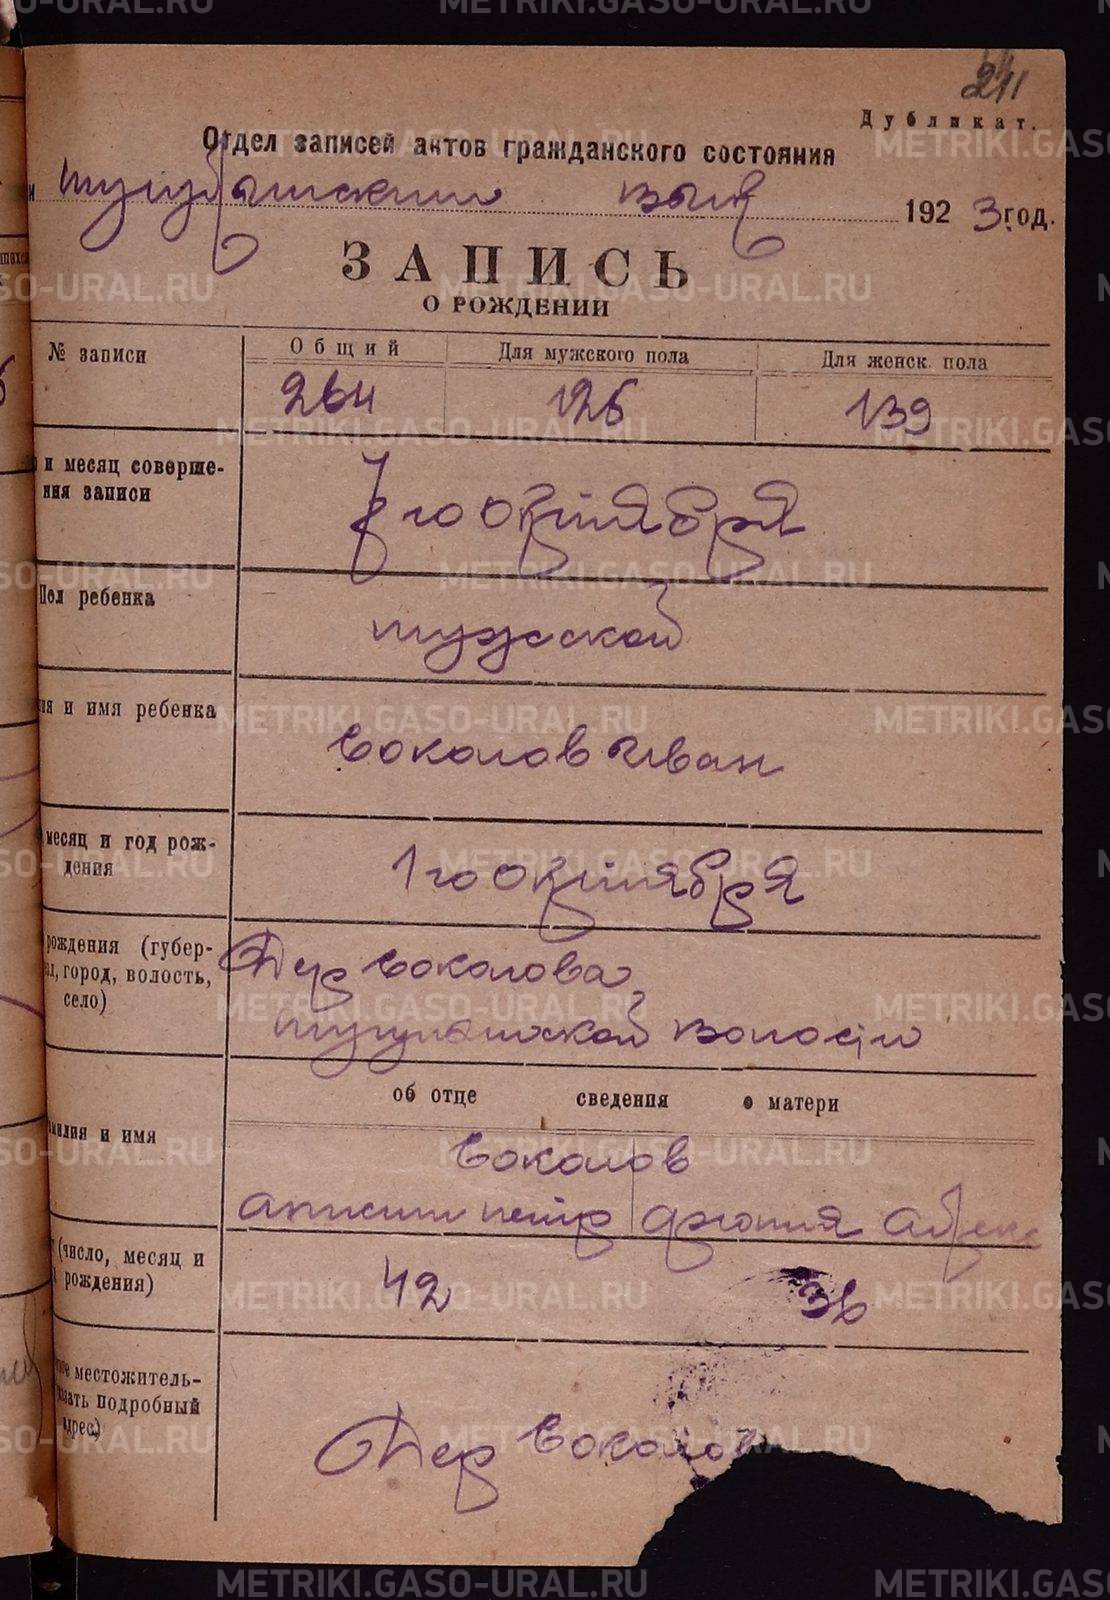 241
Дубликат.
Отдел записей актов гражданского состояния
1923 год.
ЗАПИСЬ
О РОЖДЕНИИ
№ записи
Общий
Для мужского пола
Для женск. пола
264
125
139
и месяц соверше-
ния записи
7 го октября
Пол ребенка
мужской
ия и имя ребенка
Соколов Иван
месяц и год рож-
дения
1 го октября
рождения (губер-
город, волость,
село)
Дер Соколова
волости
об отце сведения о матери
милия и имя
Соколов
Анисим Петр
(число, месяц и
рождения)
42
36
местожитель-
зать подробный
адрес)
Дер Соколов
METRIKI.GASO-URAL.RU